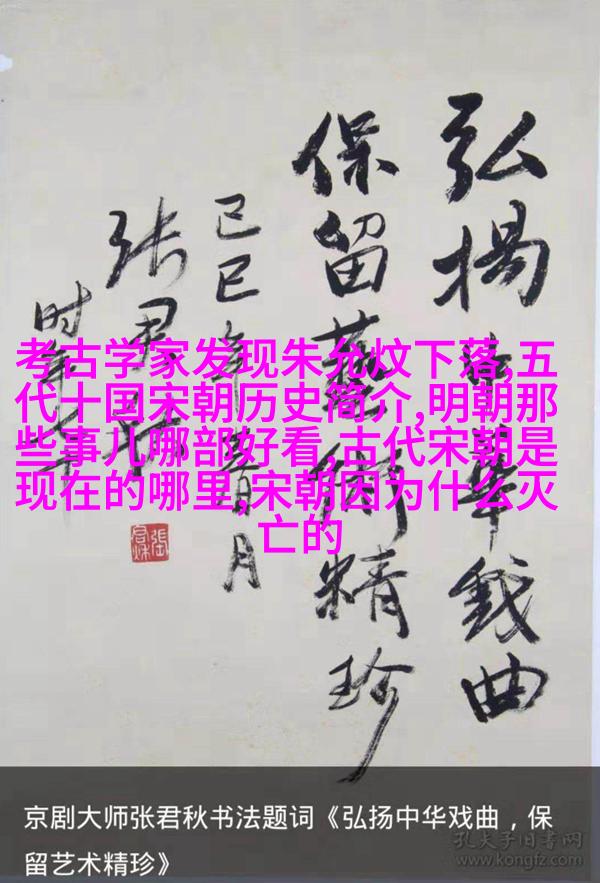 弘揚中華戲曲
保留藝術精珍
己巳年春月
张君秋
时年
考古学家发现朱允炆下落,五
代十国宋朝历史简介,明朝那
些事儿哪部好看,古代宋朝是
现在的哪里,宋朝因为什么灭
亡的
京剧大师张君秋书法题词《弘扬中华戏曲，保
留艺术精珍》
孔夫子旧书网
www.kongfz.com